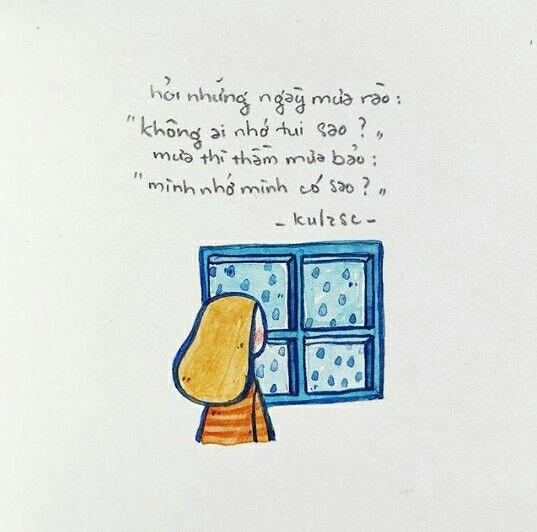 hỏi những ngày mưa rào:
"không ai nhớ tui sao?"
mưa thì thầm mưa bảo:
"mình nhớ mình có sao?"
- kulzsc -